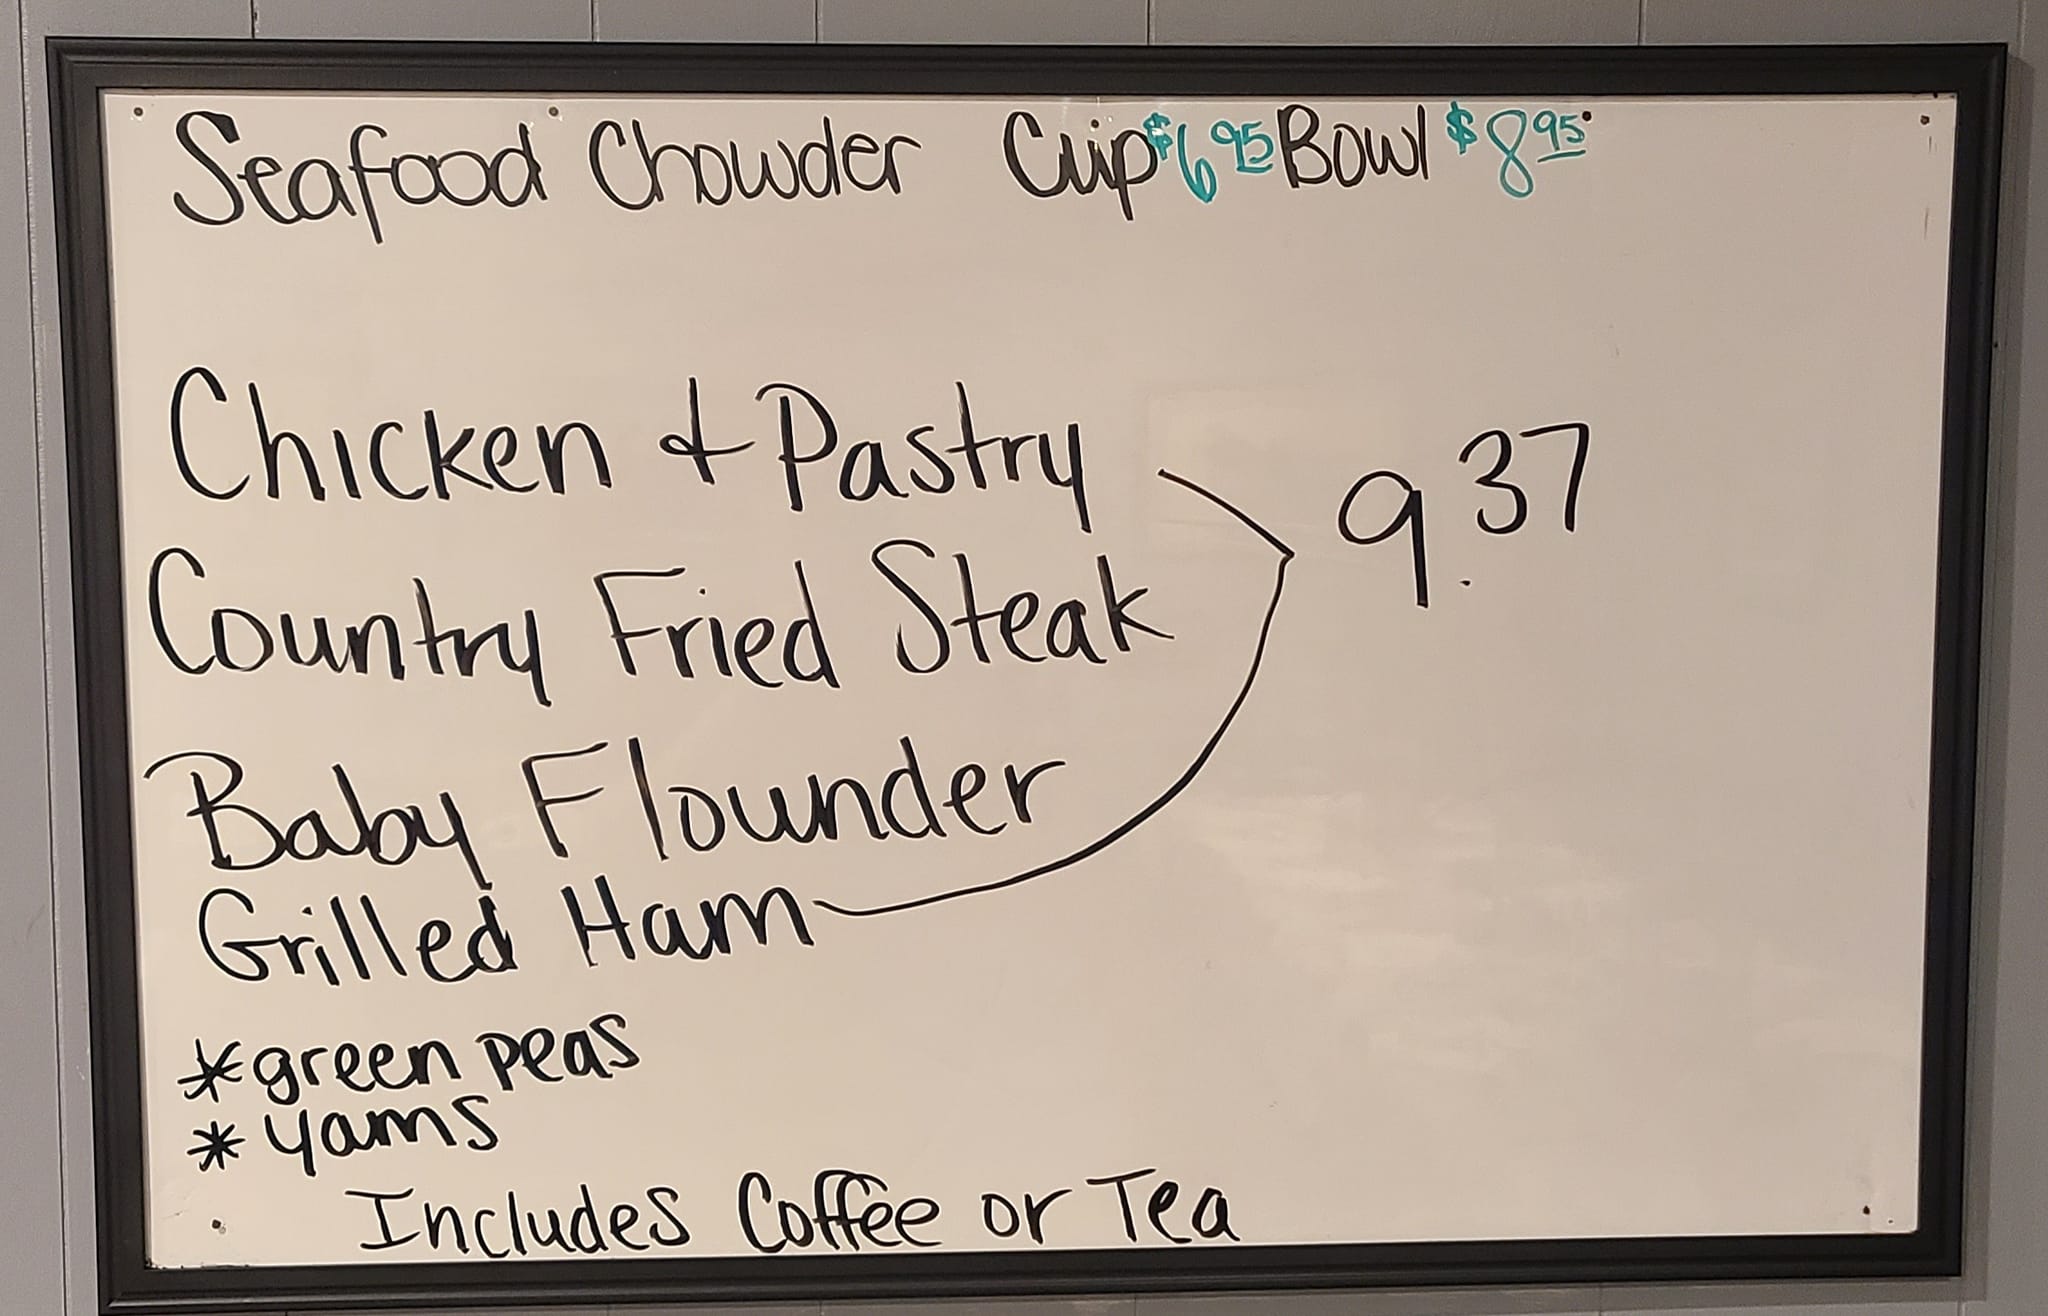 Seafood Chowder Cup $6 95 Bowl $8 95
Chicken & Pastry
9.37
Country Fried Steak
Baby Flounder
Grilled Ham
*green peas
*yams
Includes Coffee or Tea